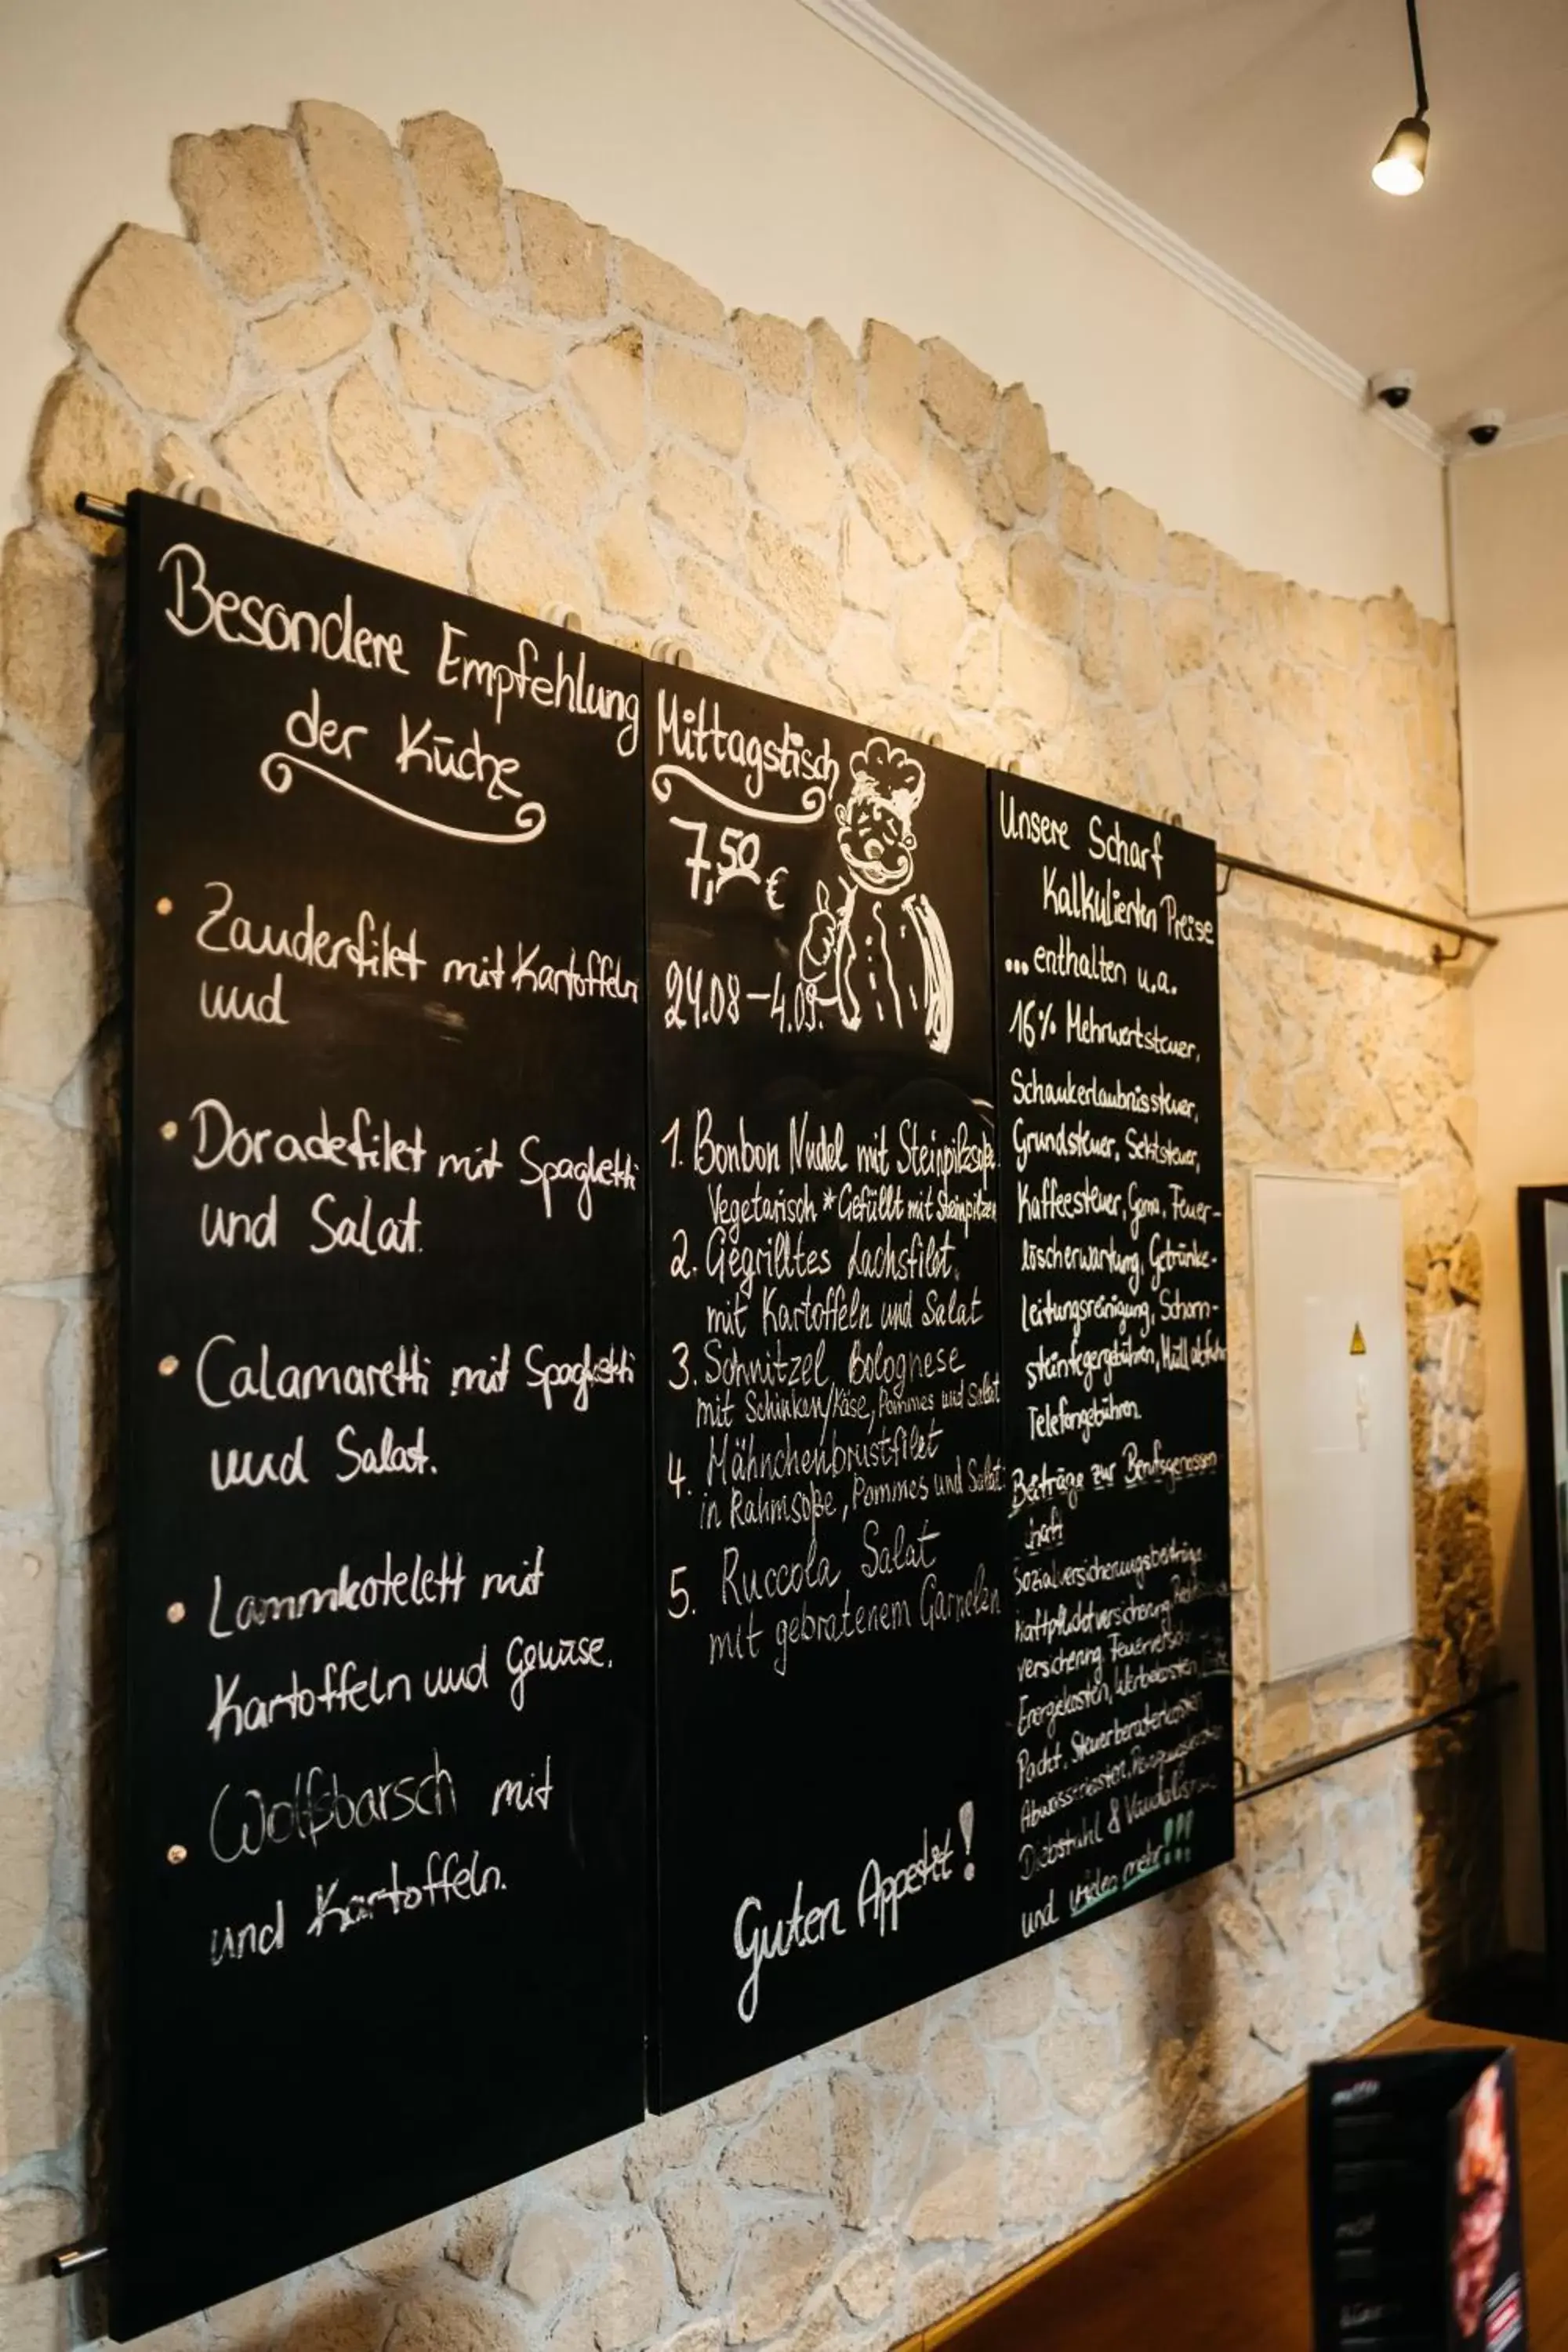 Besondere Empfehlung
der Küche
Zanderfilet mit Kartoffeln
und
Doradefilet mit Spaghetti
und Salat.
Calamaretti mit Spaghetti
und Salat.
Lammkotelett mit
Kartoffeln und Gemüse.
Wolfsbarsch mit
und Kartoffeln.
Mittagstisch
7,50 €
24.08-4.09.
1. Bonbon Nudel mit Steinpilzsoße
Vegetarisch *Gefüllt mit Steinpilzen
2. Gegrilltes Lachsfilet,
mit Kartoffeln und Salat
3. Schnitzel Bolognese
mit Schinken/Käse, Pommes und Salat
4. Hähnchenbrustfilet
in Rahmsoße, Pommes und Salat
5. Ruccola Salat
mit gebratenem Garnelen
Guten Appetit!
Unsere Scharf
Kalkulierten Preise
...enthalten u.a.
16% Mehrwertsteuer,
Schankerlaubnissteuer,
Grundsteuer, Sektsteuer,
Kaffeesteuer, Gema, Feuer-
löscherwartung, Getränke-
leitungsreinigung, Schorn-
Müllabfuhr
Telefongebühren.
Beiträge zur Berufsgenossen
schaft
Sozialversicherungsbeiträge,
Haftpflichtversicherung,
versicherung,
Energiekosten, Werbekosten,
Pacht, Steuerberaterkosten
Abwasserkosten,
Diebstahl & Vandalismus
und vieles mehr!!!